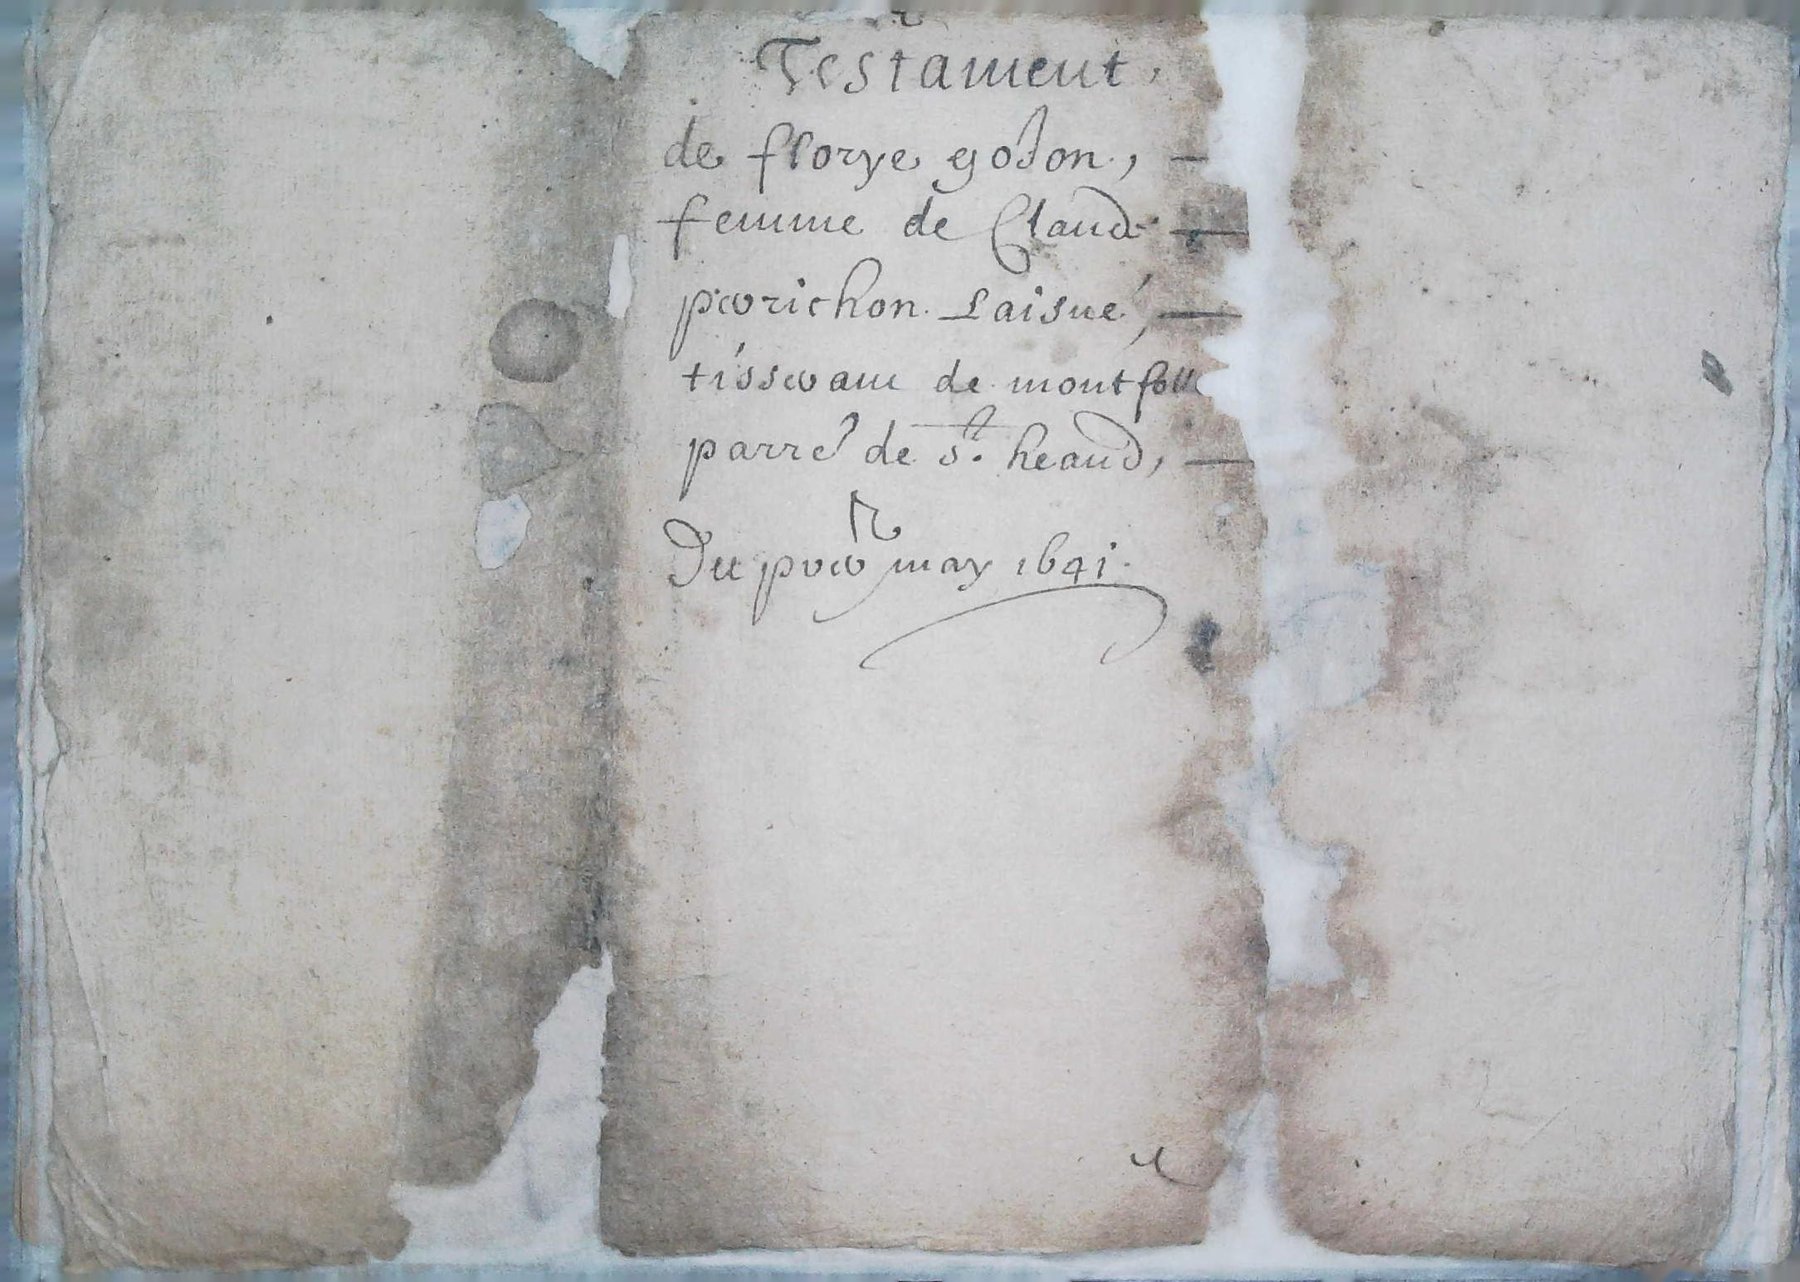 Testament,
de florye godon, —
femme de Claude —
perichon Laisné, —
tisseran de montfoll
parre de St. heand, —
Du per may 1641.